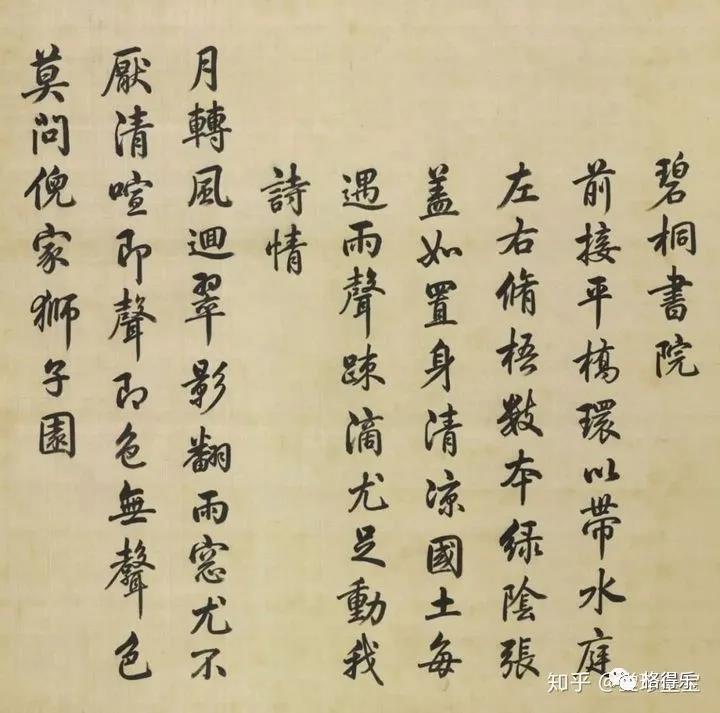 碧桐書院
前接平橋環以帶水庭
左右脩梧數本綠陰張
蓋如置身清涼國土每
遇雨聲踈滴尤足動我
詩情
月轉風迴翠影翻雨窓尤不
厭清喧即聲即色無聲色
莫問倪家獅子園
知乎
格得乐